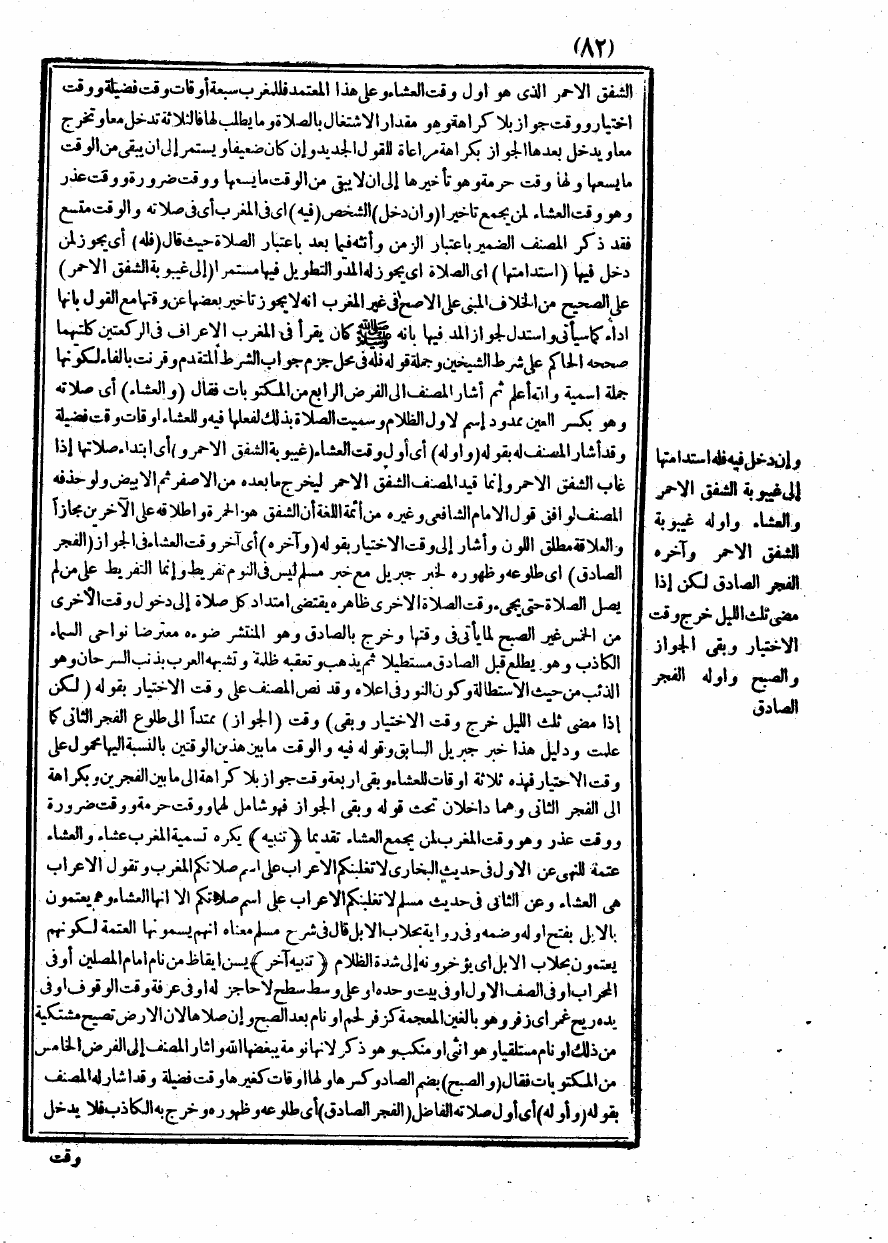 (٨٢)
الشفق الاحمر الذى هو اول وقت العشاء وعلى هذا المعتمد فللمغرب سبعة أوقات وقت فضيلة ووقت
اختيار ووقت جواز بلا كراهة وهو مقدار الاشتغال بالصلاة وما يطلب لها فالثلاثة تدخل معا وتخرج
معا ويدخل بعدها الجواز بكراهة مراعاة للقول الجديد وإن كان ضعيفا ويستمر إلى ان يبقى من الوقت
ما يسعها ولها وقت حرمة وهو تأخيرها إلى ان لا يبقى من الوقت ما يسعها ووقت ضرورة ووقت عذر
وهو وقت العشاء لمن يجمع تاخيرا (وان دخل) الشخص (فيه) اى فى المغرب أى فى صلاته والوقت متسع
فقد ذكر المصنف الضمير باعتبار الزمن وأنثه فيما بعد باعتبار الصلاة حيث قال (فله) أى يجوز لمن
دخل فيها (استدامتها) اى الصلاة اى يجوز له المد والتطويل فيها مستمرا (إلى غيبوبة الشفق الاحمر)
على الصحيح من الخلاف المبنى على الاصح فى غير المغرب انه لا يجوز تاخير بعضها عن وقتها مع القول بانها
اداء كما سيأتى واستدل لجواز المد فيها بانه ﷺ كان يقرأ فى المغرب الاعراف فى الركعتين كلتيهما
صححه الحاكم على شرط الشيخين وجملة قوله فله فى محل جزم جواب الشرط المتقدم وقرنت بالفاء لكونها
جملة اسمية والله أعلم ثم أشار المصنف الى الفرض الرابع من المكتوبات فقال (والعشاء) أى صلاته
وهو بكسر العين ممدود إسم لاول الظلام وسميت الصلاة بذلك لفعلها فيه وللعشاء اوقات وقت فضيلة
وقد أشار المصنف له بقوله (واوله) أى أول وقت العشاء (غيبوبة الشفق الاحمر و) أى ابتداء صلاتها إذا
غاب الشفق الاحمر وإنما قيد المصنف الشفق الاحمر ليخرج ما بعده من الاصفر ثم الابيض ولو حذفه
المصنف لوافق قول الامام الشافعى وغيره من أئمة اللغة أن الشفق هو الحمرة واطلاقه على الآخرين مجازاً
والعلاقة مطلق اللون وأشار إلى وقت الاختيار بقوله (وآخره) أى آخر وقت العشاء فى الجواز (الفجر
الصادق) اى طلوعه وظهوره لخبر جبريل مع خبر مسلم ليس فى النوم تفريط وإنما التفريط على من لم
يصل الصلاة حتى يجىء وقت الصلاة الاخرى ظاهره يقتضى امتداد كل صلاة إلى دخول وقت الأخرى
من الخمس غير الصبح لما يأتى فى وقتها وخرج بالصادق وهو المنتشر ضوءه معترضا نواحى السماء
الكاذب وهو يطلع قبل الصادق مستطيلا ثم يذهب وتعقبه ظلمة وتشبهه العرب بذنب السرحان وهو
الذئب من حيث الاستطالة وكون النور فى اعلاه وقد نص المصنف على وقت الاختيار بقوله (لكن
إذا مضى ثلث الليل خرج وقت الاختيار وبقى) وقت (الجواز) ممتداً الى طلوع الفجر الثانى كما
علمت ودليل هذا خبر جبريل السابق وقوله فيه والوقت ما بين هذين الوقتين بالنسبة اليها محمول على
وقت الاختيار فهذه ثلاثة اوقات للعشاء وبقى اربعة وقت جواز بلا كراهة الى ما بين الفجرين وبكراهة
الى الفجر الثانى وهما داخلان تحت قوله وبقى الجواز فهو شامل لهما ووقت حرمة ووقت ضرورة
ووقت عذر وهو وقت المغرب لمن يجمع العشاء تقديما (تنبيه) يكره تسمية المغرب عشاء والعشاء
عتمة للنهى عن الاول فى حديث البخارى لا تغلبنكم الاعراب على اسم صلاتكم المغرب وتقول الاعراب
هى العشاء وعن الثانى فى حديث مسلم لا تغلبنكم الاعراب على اسم صلاتكم الا انها العشاء وهم يعتمون
بالابل بفتح اوله وضمه وفى رواية بحلاب الابل قال فى شرح مسلم معناه انهم يسمونها العتمة لكونهم
يعتمون بحلاب الابل اى يؤخرونه إلى شدة الظلام (تنبيه آخر) يسن ايقاظ من نام امام المصلين أو فى
المحراب او فى الصف الاول او فى بيت وحده او على وسط سطح لا حاجز له او فى عرفة وقت الوقوف او فى
يده ريح غمر اى زفر وهو بالغين المعجمة كزفر لحم او نام بعد الصبح وإن صلاها لان الارض تصيح مشتكية
من ذلك او نام مستلقيا وهو انثى او منكب وهو ذكر لانها نومة يبغضها الله واشار المصنف إلى الفرض الخامس
من المكتوبات فقال (والصبح) بضم الصاد وكسرها ولها اوقات كغيرها وقت فضيلة وقد اشار له المصنف
بقوله (وأوله) أى أول صلاته الفاضل (الفجر الصادق) أى طلوعه وظهوره وخرج به الكاذب فلا يدخل
وقت
وإن دخل فيه فله استدامتها
إلى غيبوبة الشفق الاحمر
والعشاء واوله غيبوبة
الشفق الاحمر وآخره
الفجر الصادق لكن إذا
مضى ثلث الليل خرج وقت
الاختيار وبقى الجواز
والصبح واوله الفجر
الصادق